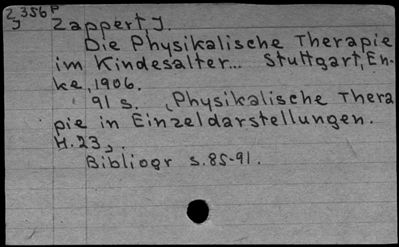 2,356 P
J Zappert, J.
Die Physikalische Therapie
im Kindesalter... Stuttgart, En-
ke, 1906.
91 s. (Physikalische Thera
pie in Einzeldarstellungen.
H.23).
Bibliogr s.85-91.